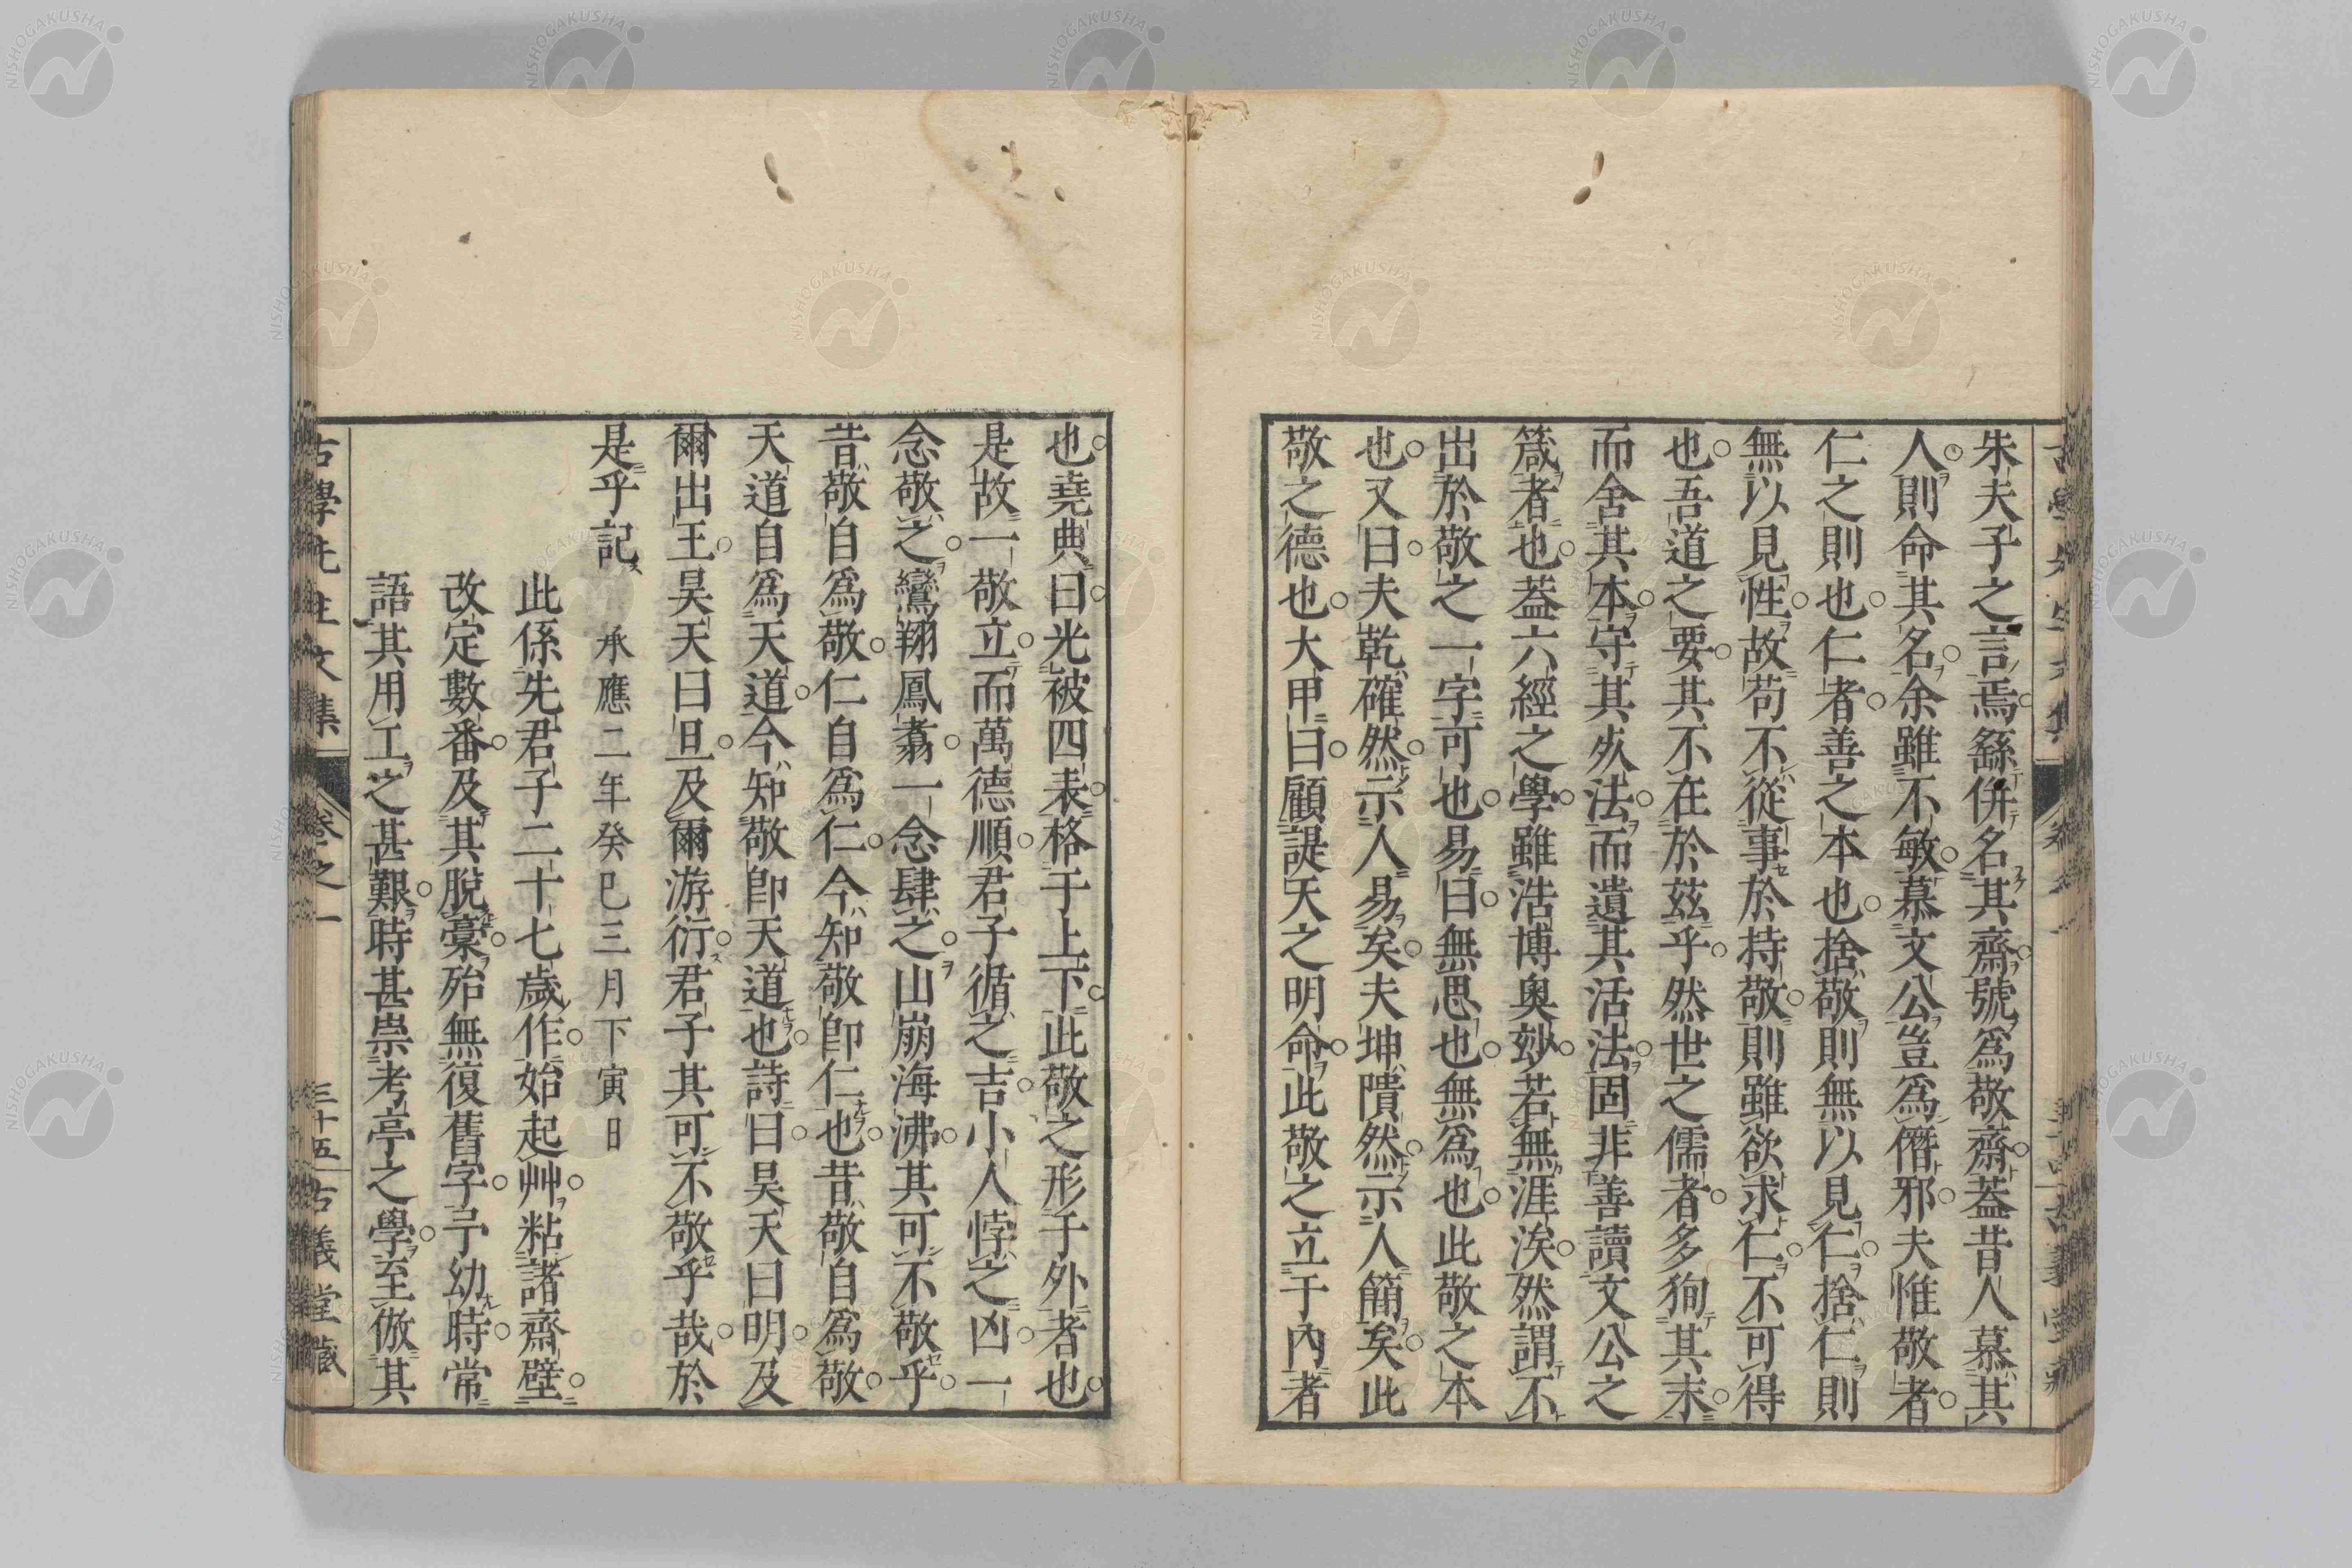 朱夫子之言焉繇併名其齋號爲敬齋蓋昔人慕其
人則命其名余雖不敏慕文公豈爲僭邪夫惟敬者
仁之則也仁者善之本也捨敬則無以見仁捨仁則
無以見性故苟不從事於持敬則雖欲求仁不可得
也吾道之要其不在於茲乎然世之儒者多狥其末
而舍其本守其㱙法而遺其活法固非善讀文公之
箴者也蓋六經之學雖浩博奥妙若無涯涘然謂不
出於敬之一字可也易曰無思也無爲也此敬之本
也又曰夫乾確然示人易矣夫坤隤然示人簡矣此
敬之德也大甲曰顧諟天之明命此敬之立于內者
也堯典曰光被四表格于上下此敬之形于外者也
是故一敬立而萬德順君子循之吉小人悖之凶一
念敬之鸞翔鳳翥一念肆之山崩海沸其可不敬乎
昔敬自爲敬仁自爲仁今知敬卽仁也昔敬自爲敬
天道自爲天道今知敬卽天道也詩曰昊天曰明及
爾出王昊天曰旦及爾游衍君子其可不敬乎哉於
是乎記　承應二年癸巳三月下寅日
此係先君子二十七歲作始起艸粘諸齋壁
改定數番及其脫稾殆無復舊字予幼時常
語其用工之甚艱時甚崇考亭之學至倣其
古學先生文集　卷之一　三十五　古義堂藏
NISHOGAKUSHA